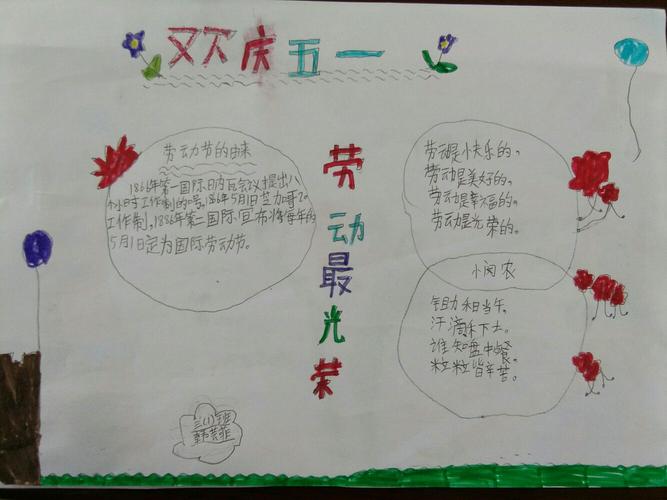 欢庆五一
劳动节的由来
1866年第一国际日内瓦会议提出八
小时工作制的口号,1866年5月1日芝加哥工
工作制,1886年第二国际宣布将每年的
5月1日定为国际劳动节。
劳动最光荣
劳动是快乐的,
劳动是美好的,
劳动是幸福的,
劳动是光荣的。
小闵农
锄禾日当午,
汗滴禾下土。
谁知盘中餐,
粒粒皆辛苦。
三(1)班